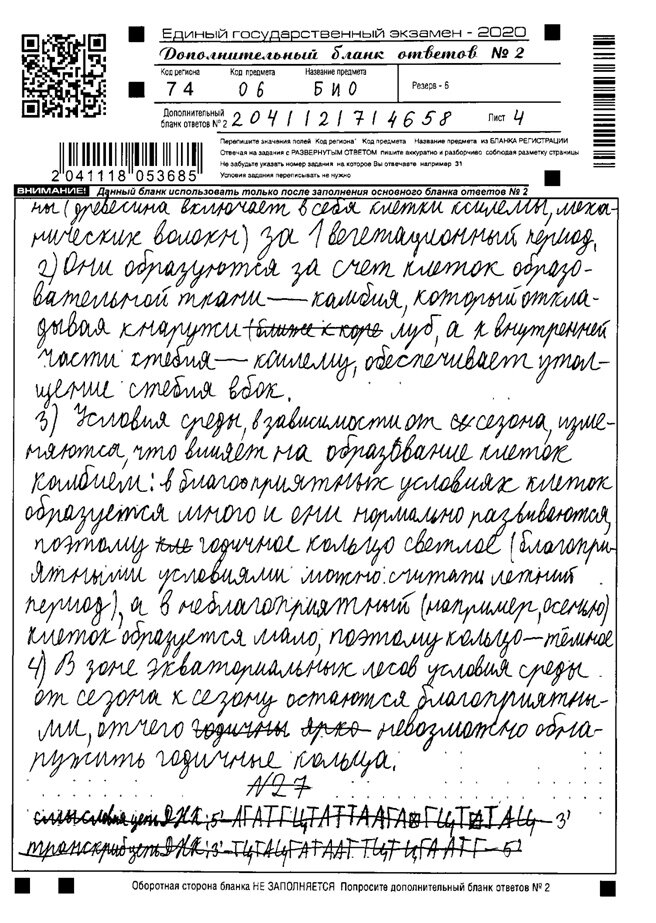 Единый государственный экзамен - 2020
Дополнительный бланк ответов № 2
Код региона Код предмета Название предмета
Резерв - 6
74 06 БИО
Дополнительный бланк ответов № 2 2041121714658 Лист 4
Перепишите значения полей Код региона Код предмета Название предмета из БЛАНКА РЕГИСТРАЦИИ
Отвечая на задания с РАЗВЕРНУТЫМ ОТВЕТОМ пишите аккуратно и разборчиво соблюдая разметку страницы
Не забудьте указать номер задания на которое Вы отвечаете например 31
Условия задания переписывать не нужно
2041118053685
ВНИМАНИЕ! Данный бланк использовать только после заполнения основного бланка ответов № 2
ны (древесина включает в себя клетки ксилемы, меха-
нических волокн) за 1 вегетационный период.
2) Они образуются за счет клеток образо-
вательной ткани — камбия, который откла-
дывая кнаружи (ближе к коре луб, а к внутренней
части стебля — ксилему, обеспечивает утол-
щение стебля вбок.
3) Условия среды, в зависимости от сезона, изме-
няются, что влияет на образование клеток
камбием: в благоприятных условиях клеток
образуется много и они нормально развиваются,
поэтому кле годичное кольцо светлое (благопри-
ятными условиями можно считать летний
период), а в неблагоприятный (например, осенью)
клеток образуется мало, поэтому кольцо — тёмное
4) В зоне экваториальных лесов условия среды
от сезона к сезону остаются благоприятны-
ми, отчего годичны ярко невозможно обна-
ружить годичные кольца.
№27
смысловая цепь ДНК: 5'- - 3'
транскриб цепь ДНК: 3'- - 5'
Оборотная сторона бланка НЕ ЗАПОЛНЯЕТСЯ Попросите дополнительный бланк ответов № 2